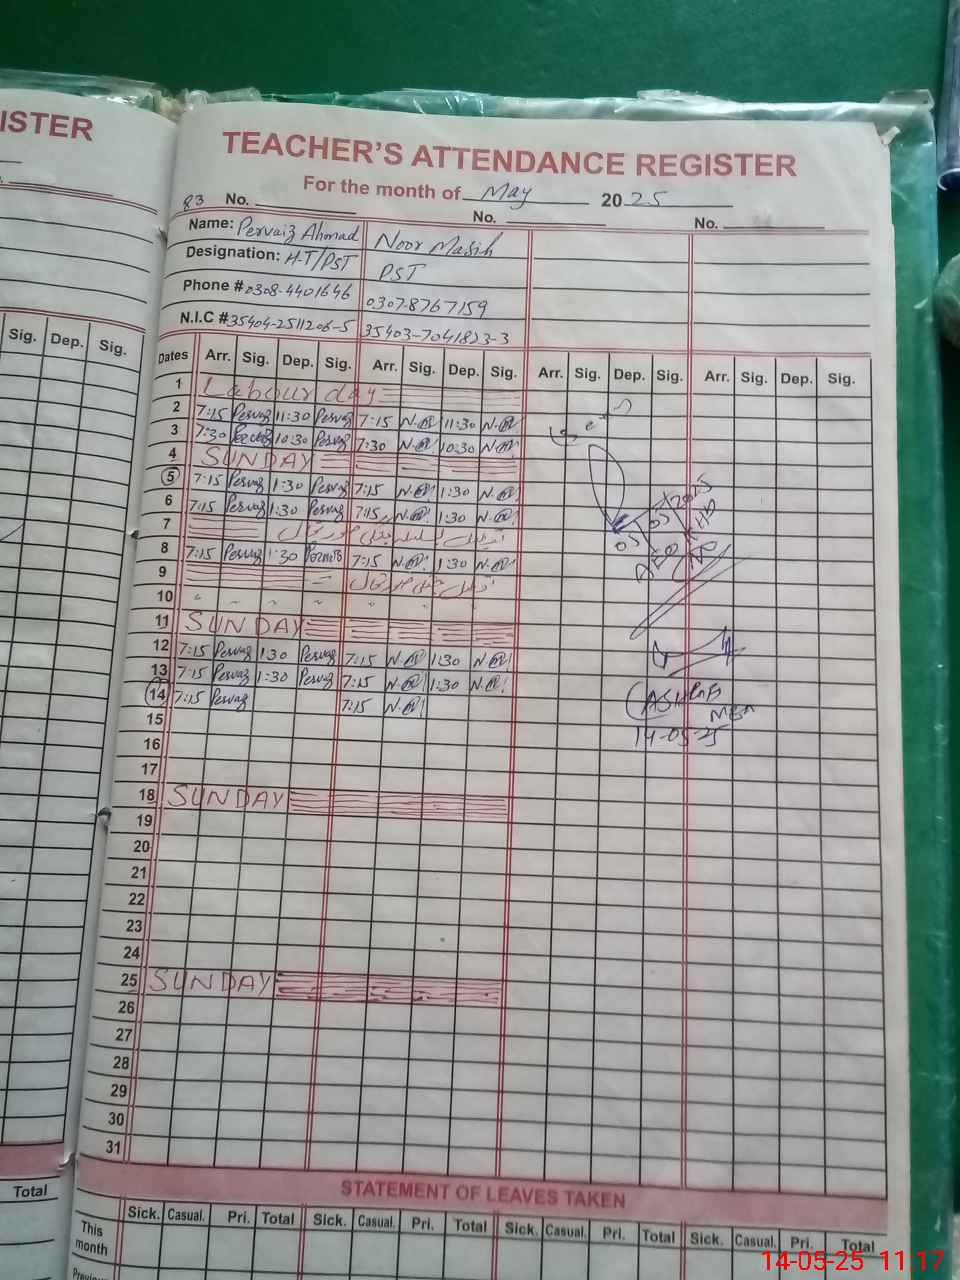 ISTER
TEACHER'S ATTENDANCE REGISTER
For the month of May 2025
83 No. No. No.
Name: Pervaiz Ahmad Noor Masih
Designation: H-T/PST PST
Phone # 0308-4401646 0307-8767159
N.I.C # 35404-2511206-5 35403-7041823-3
Sig. Dep. Sig.
Dates Arr. Sig. Dep. Sig. Arr. Sig. Dep. Sig. Arr. Sig. Dep. Sig. Arr. Sig. Dep. Sig.
1 Labour day
2 7:15 Pervaiz 11:30 Pervaiz 7:15 11:30
3 7:30 Pervaiz 10:30 Pervaiz 7:30 10:30
4 SUNDAY
5 7:15 Pervaiz 1:30 Pervaiz 7:15 1:30
6 7:15 Pervaiz 1:30 Pervaiz 7:15 1:30
7
8 7:15 Pervaiz 1:30 Pervaiz 7:15 1:30
9
10 " " " " " " "
11 SUNDAY
12 7:15 Pervaiz 1:30 Pervaiz 7:15 1:30
13 7:15 Pervaiz 1:30 Pervaiz 7:15 1:30
14 7:15 Pervaiz 7:15
15
16
17
18 SUNDAY
19
20
21
22
23
24
25 SUNDAY
26
27
28
29
30
31
05 05 2025
AEO
14-05-25
STATEMENT OF LEAVES TAKEN
Total
This month Sick. Casual. Pri. Total Sick. Casual. Pri. Total Sick. Casual. Pri. Total Sick. Casual. Pri. Total
14-05-25 11:17